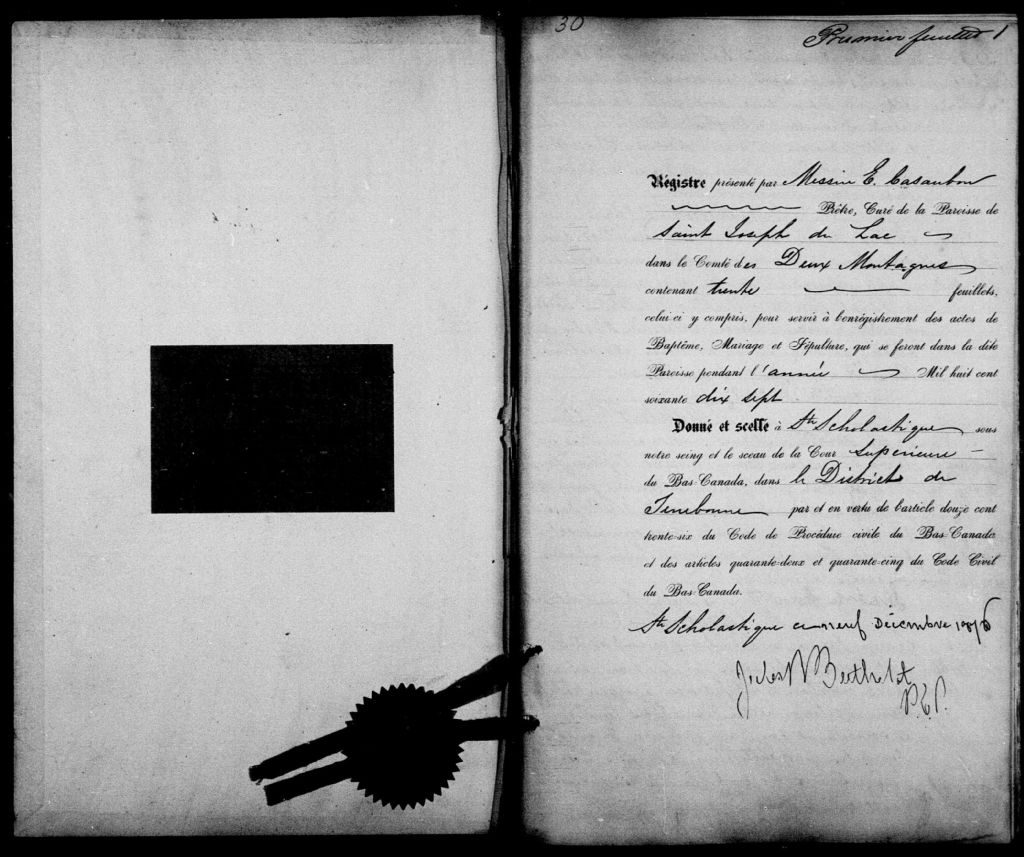 30
Premier feuillet 1
Régistre présenté par Messire E. Casaubon
Prêtre, Curé de la Paroisse de
Saint Joseph du Lac
dans le Comté des Deux Montagnes
contenant trente feuillets,
celui-ci y compris, pour servir à l'enrégistrement des actes de
Baptême, Mariage et Sépulture, qui se feront dans la dite
Paroisse pendant l'année Mil huit cent
soixante dix sept
Donné et scellé à Ste Scholastique sous
notre seing et le sceau de la Cour Supérieure
du Bas-Canada, dans le District de
Terrebonne par et en vertu de l'article douze cent
trente-six du Code de Procédure civile du Bas-Canada
et des articles quarante-deux et quarante-cinq du Code Civil
du Bas-Canada.
Ste Scholastique ce neuf Décembre 1876
Jules R Berthelot
P.C.S.